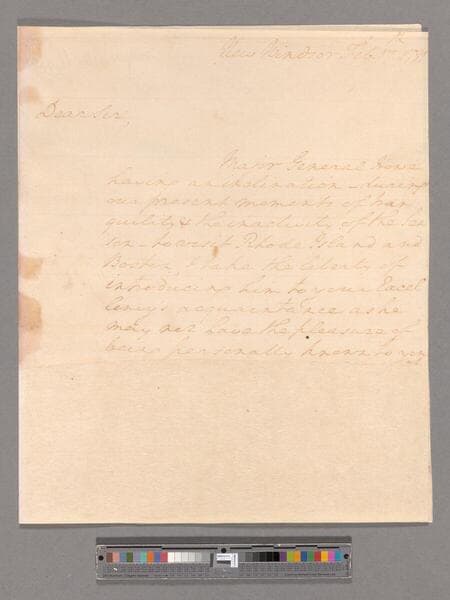 New Windsor Feb
Dear Sir,
Major General Howe
having an inclination during
our present moments of tran
quility & the inactivity of the Sea
son to visit Rhode Island and
Boston, I take the liberty of
introducing him to your Excel
lency's acquaintance as he
may not have the pleasure of
being personally known to you